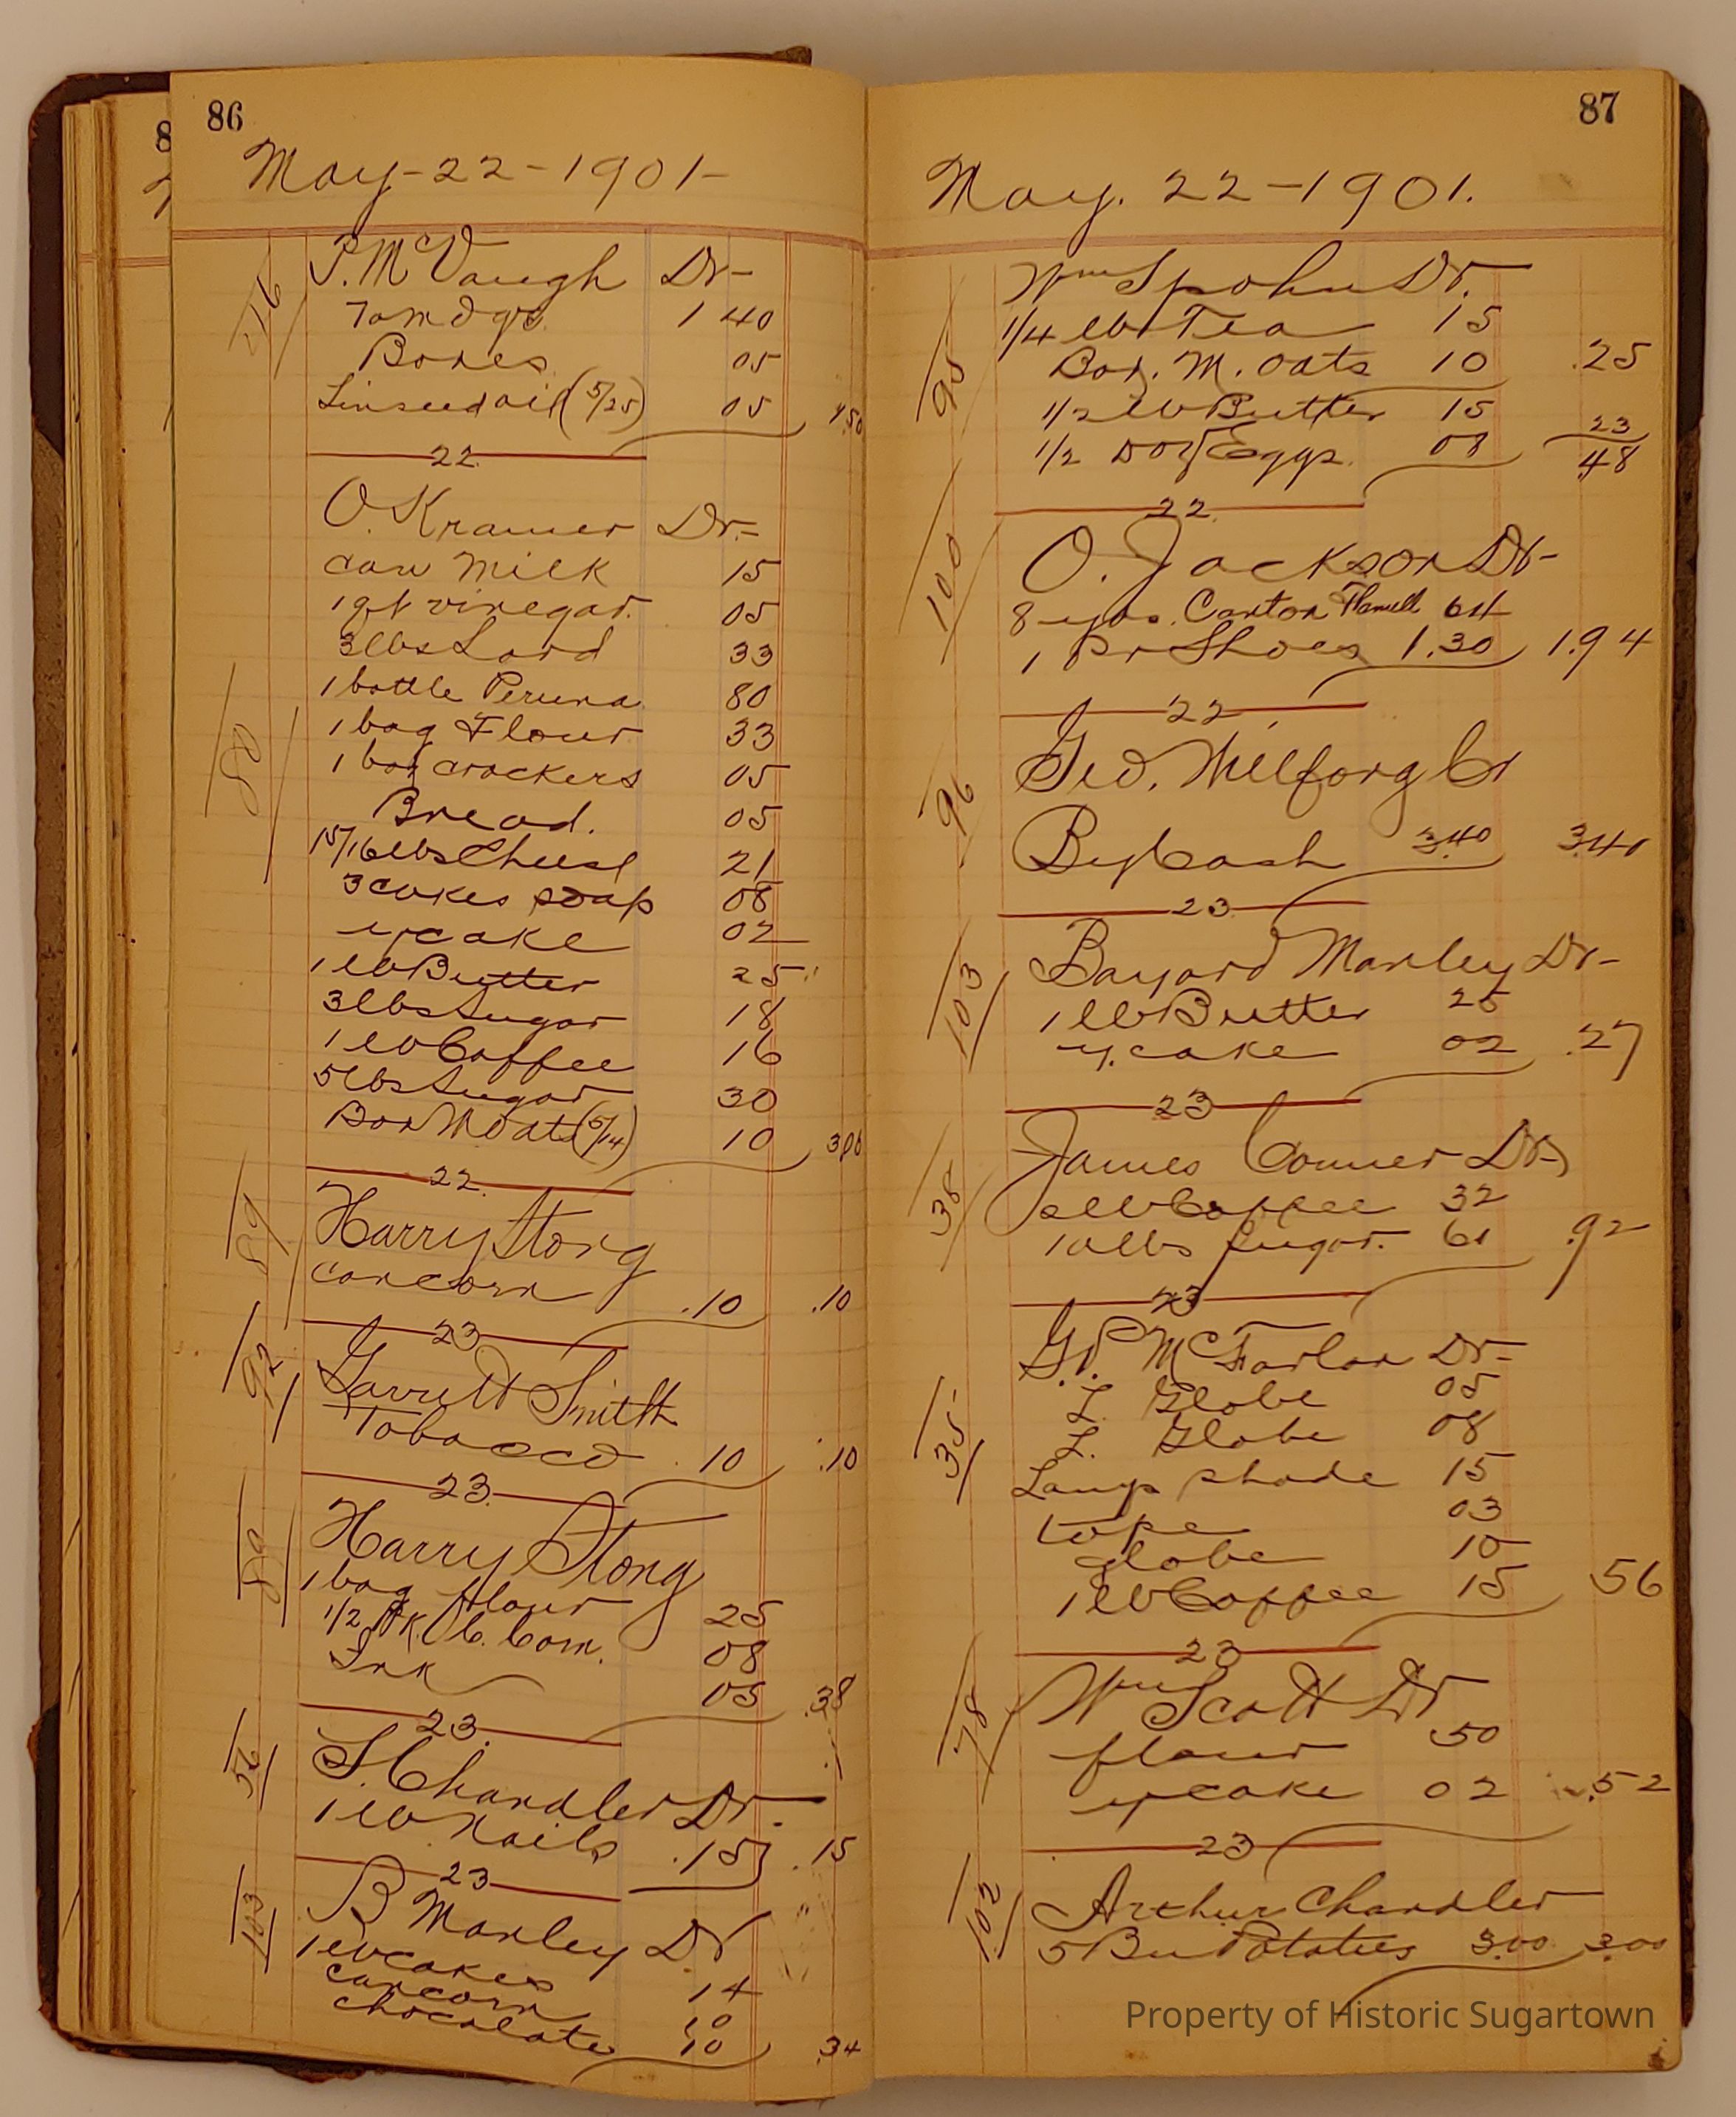 86
May-22-1901-
216
P. McVaugh Dr-
1 40
Bones 05
Linseed oil (5/25) 05 1.50
22
O. Kramer Dr-
can milk 15
1 qt vinegar. 05
3 lbs Lard 33
1 bottle Peruna 80
1 bag Flour 33
80
1 box crackers 05
Bread. 05
15/16 lbs Cheese 21
3 cakes soap 08
y cake 02
1 lb Butter 25
3 lbs Sugar 18
1 lb Coffee 16
5 lbs Sugar 30
Box M oats (5/14) 10 3.06
22.
89
Harry Stong
can corn .10 .10
23
92
Garrett Smith
Tobacco .10 .10
23.
89
Harry Stong
1 bag flour 25
1/2 Pk. C. Corn. 08
Ink 05 .38
23.
56
S. Chandler Dr.
1 lb Nails .15 .15
23
103
B Manley Dr
1 lb cakes 14
can corn 10
chocolate 10 .34
87
May. 22-1901.
Wm Spohn Dr.
1/4 lb Tea 15
95
Box. M. Oats 10 .25
1/2 lb Butter 15 23
1/2 Doz Eggs. 08 48
22.
100
O. Jackson Dr-
8 yds. Canton Flannell 64
1 Pr Shoes 1.30 1.94
22
96
Geo. Milfong Cr
By Cash 3.40 3.40
23
103
Bayard Manley Dr-
1 lb Butter 25
y. cake 02 .27
23
38
James Conner Dr-
2 lb Coffee 32
10 lbs Sugar. 60 .92
23
G.P. McFarlan Dr-
L. Globe 05
35
L. Globe 08
Lamp shade 15
tape 03
globe 10
1 lb Coffee 15 56
23
78
Wm Scott Dr
flour 50
y cake 02 .52
23
102
Arthur Chandler
5 Bu Potatoes 3.00 3.00
Property of Historic Sugartown